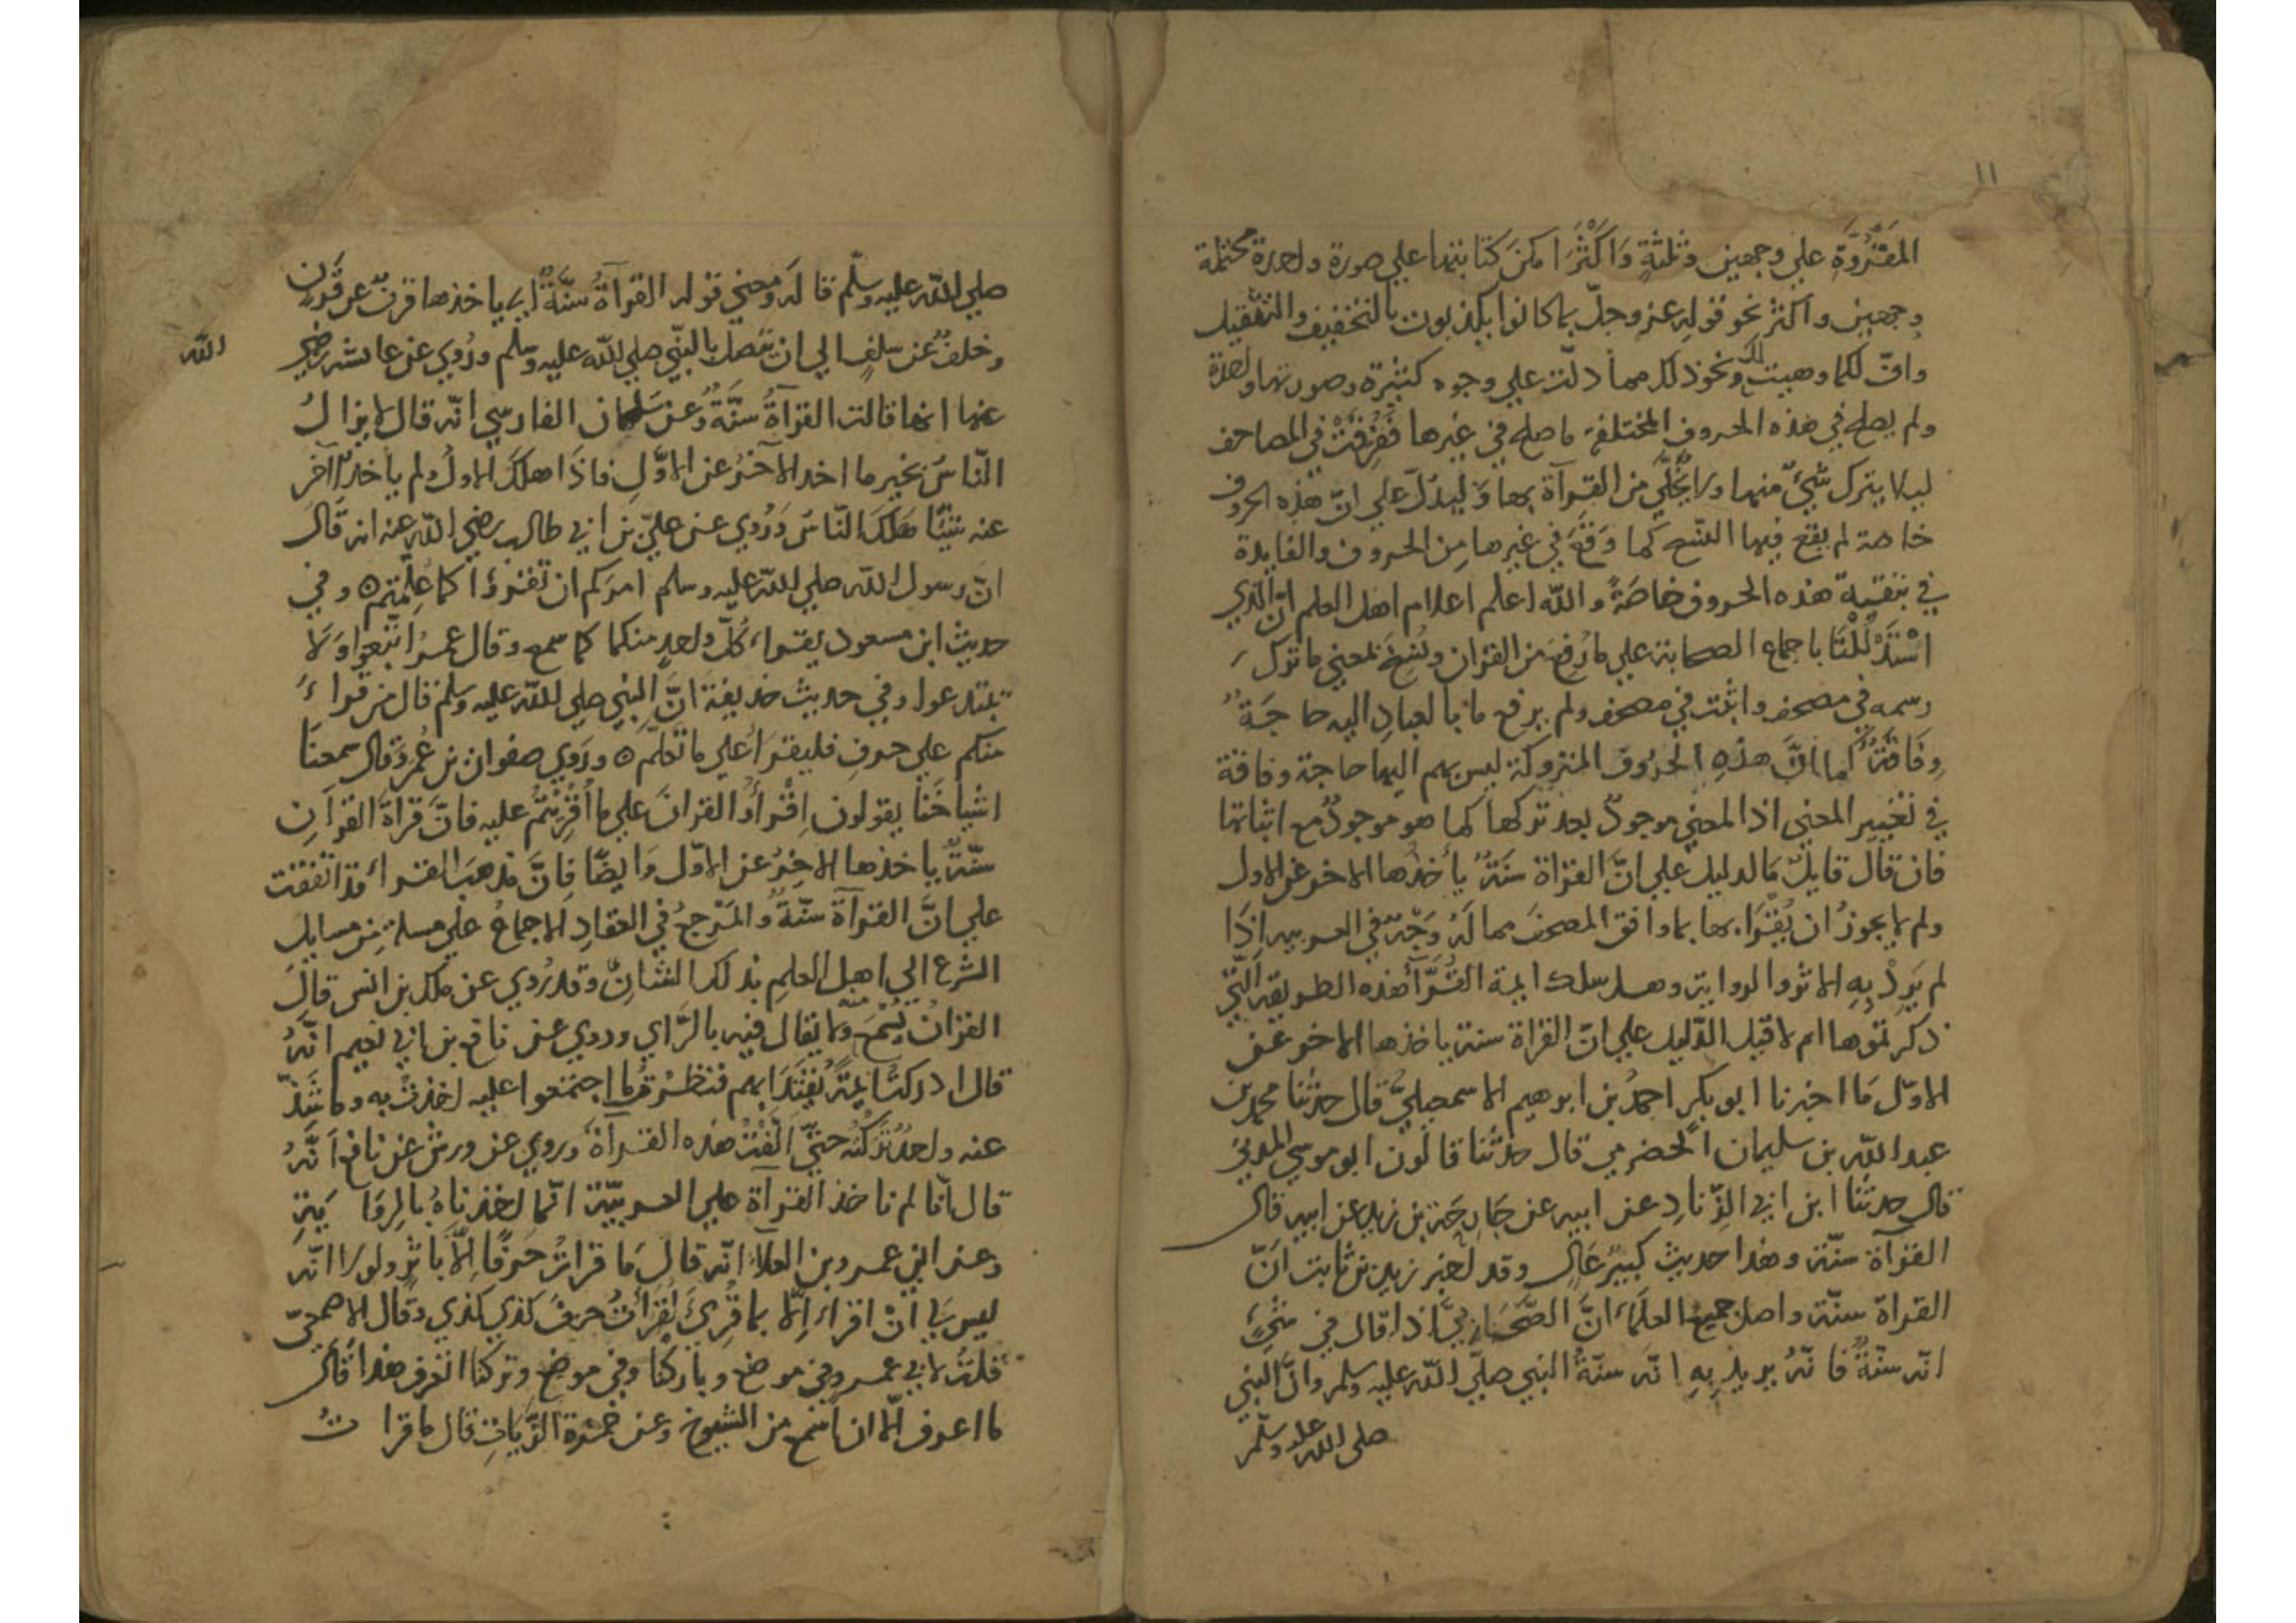 ١١
المقروّة علي وجهين وثلثةٍ وَاكثرَ امكنَ كتابتها علي صورة واحدة محتملة
وجهين واكثر نحو قوله عز وجلّ بما كانوا يكذبون بالتخفيف والتثقيل
وانّ لكما وهيت لك ونحو ذلك مما دلّت علي وجوه كثيرة وصورتها واحدة
ولم يصلح في هذه الحروف المختلفة ما صلح في غيرها ففرقت في المصاحف
ليلا يترك شيٌ منها ولا يخلّي من القرآة بها وَليدلّ علي انّ هذه الحروف
خاصة لم يقع فيها النسخ كما وَقعَ في غيرها مِن الحروف والفايدة
في تبقية هذه الحروف خاصّةً والله اعلم اعلام اهل العلم انّ الذي
اسْتَدْلَلْنَا باجماع الصحابة علي ما رُفِعَ من القران ونُسِخَ لمعني ما ترك
رسمه في مصحف واثبت في مصحف ولم يرفع ما بالعبادِ اليه حاجَةٌ
وفَاقَةٌ كما انَّ هذهِ الحروف المتروكة ليس بهم اليها حاجة وفاقة
في تغيير المعني اذ المعني موجودٌ بعد تركها كما هو موجودٌ مع اثباتها
فان قال قايلٌ مَا الدليل علي انَّ القراة سنَةٌ يأخذُها الاخر عن الاول
ولم لا يجوزُ ان يُقْرَا بها بما وافق المصحف مما لَهُ وَجْهٌ في العربيه اِذَا
لم يَرِدْ بِهِ الاثر والرواية وهل سلك ايمة القُرَّآ هذه الطريقة التي
ذكرتموها ام لا قيل الدّليل علي انّ القراة سنة ياخذها الاخر عن
الاوّل مَا اخبرنا ابو بكرٍ احمدُ بن ابرهيم الاسمعيليُّ قال حدّثنا محمد بن
عبد اللّه بن سليمان الحضرمي قال حدّثنا قالون ابو موسي المدنيُّ
قال حدثنا ابن ابي الزِّنادِ عن ابيه عن خارجَة بن زيد عن ابيه قال
القرآة سنّة وهذا حديث كبيرٌ عَالٍ وقد اخبر زيد بن ثابت انّ
القراة سنّة واصل جميع العلمآء انَّ الصَّحَابيَّ اذا قال في شيٍ
انّه سنّةٌ فانّهُ يريد بِهِ انّه سنّةُ النبي صلّي اللّه عليه وسلم وانَّ النبي
صلي الله عليه وسلّم
صلي اللّه عليه وسلّم قالَه ومعني قوله القرآةُ سنَّةٌ اي ياخذها قرنٌ عن قَرنٍ
وخلفٌ عن سلفٍ الي ان تتصل بالنبّي صلي اللّه عليه وسلم ورُوي عن عايشة رضي
اللّه
عنها انها قالت القرآةُ سنَّةٌ وعن سَلمان الفارسّي انّه قال لا يزالُ
النّاسُ بخيرٍ ما اخذ الاخرُ عن الاوَّلِ فاذَا هلك الاولُ ولم ياخذ الآخر
عنه شيًا هَلكَ النّاسُ وَرُوي عن عليّ بن ابي طالب رضي اللّه عنه انه قَال
انّ رسول اللّه صلي اللّه عليه وسلم امركم ان تقرؤا كما عُلِّمتم ه وفي
حديث ابن مسعود يقراء كُلّ واحدٍ منكما كما سمع وقال عمرُ اتبعوا وَلَا
تبتدعوا وفي حديث حذيفة انَّ النبي صلي اللّه عليه وسلم قال من قراءَ
منكم علي حرفٍ فليقرأ علي ما تعلّم ه ورَوي صفوان بن عُمَر وقال سمعنَا
اشياخَنا يقولون اِقْرأُوا القرانَ علي ما اُقْرِئتُم عليه فانَّ قراةَ القرآنِ
سنّةٌ ياخذها الاخِرُ عن الاوّل وَايضًا فاِنَّ مذهبَ القراء قد اتفقت
علي انَّ القرآةَ سنّةٌ والمَرْجعُ في انعقادِ الاجماع علي مسلة مِن مسايل
الشرع الي اهل العلمِ بذلك الشانِ وقد رُوي عن ملك بن انس قالَ
القرانُ يُسْمَعُ ولا يقال فيه بالرّاي وروي عن نافع بن ابي نعيم انّهُ
قال ادركتُ ايمّةً يُقْتدَا بهم فنظرتُ ما اجتمعوا عليه اخذتُ به وما شَذّ
عنه واحدٌ تَركتُه حتيّ الَّفْتُ هذه القرآة وروي عن ورش عن نافع اَنّهُ
قال اَنّا لم ناخذ القرآة علي العربيّة انّما اخذناهُ بالرِوَايَةِ
وعن ابي عمرو بن العلآء انّه قالَ مَا قراتُ حَرفًا اِلّا باثرٍ ولولا انّه
ليس لي انْ اقراء اِلّا بما قُرِئَ لقرأتُ حرفَ كذي كذي وقال الاصمعيّ
قلتُ لابي عمرو في موضع وباركنا وفي موضع وتركنا اتعرف هذا قال
ما اعرف الّا ان اسمع من الشيوخ وعن حمزة الزّياتِ قال ما قراتُ